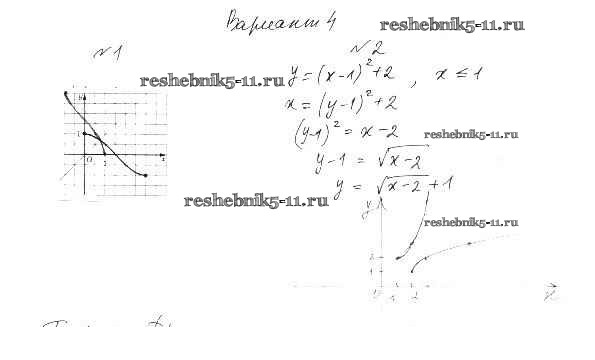 Вариант 4
reshebnik5-11.ru
№1
reshebnik5-11.ru
№2
y = (x-1)² + 2 , x ≤ 1
x = (y-1)² + 2
(y-1)² = x - 2
reshebnik5-11.ru
y - 1 = √(x-2)
y = √(x-2) + 1
reshebnik5-11.ru
reshebnik5-11.ru
y
2
1
0 1 2 x